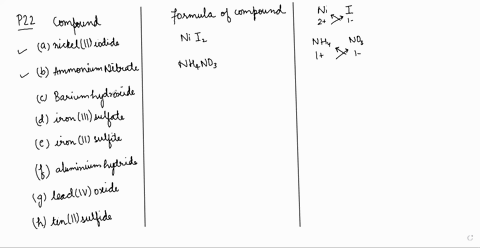 P22 Compound
(a) nickel(II) iodide
(b) Ammonium Nitrate
(c) Barium hydroxide
(d) iron (III) sulfate
(e) iron (II) sulfite
(f) aluminium hydride
(g) lead (IV) oxide
(h) ten(II) sulfide
Formula of compound
Ni I2
NH4NO3
Ni I
2+ 1-
NH4 NO3
1+ 1-